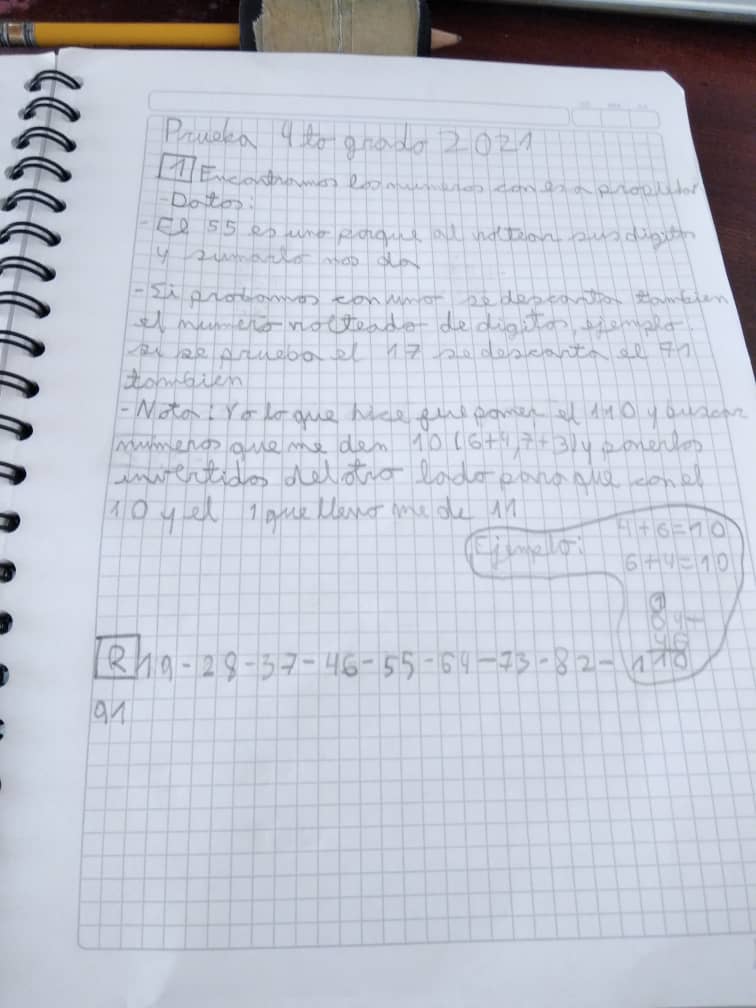 Prueba 4to grado 2021
1 Encontramos los numeros con esa propiedad
-Datos:
- El 55 es uno porque al voltear sus digitos
y sumarlo nos da
- Si probamos con uno se descarta tambien
el numero volteado de digitos, ejemplo:
si se prueba el 17 se descarta el 71
tambien
- Nota: Yo lo que hice fue poner el 110 y buscar
numeros que me den 10 (6+4, 7+3) y ponerlos
invertidos del otro lado para que con el
10 y el 1 que llevo me de 11
Ejemplo: 4+6=10
6+4=10
1
64
46
110
R 19-28-37-46-55-64-73-82-
91